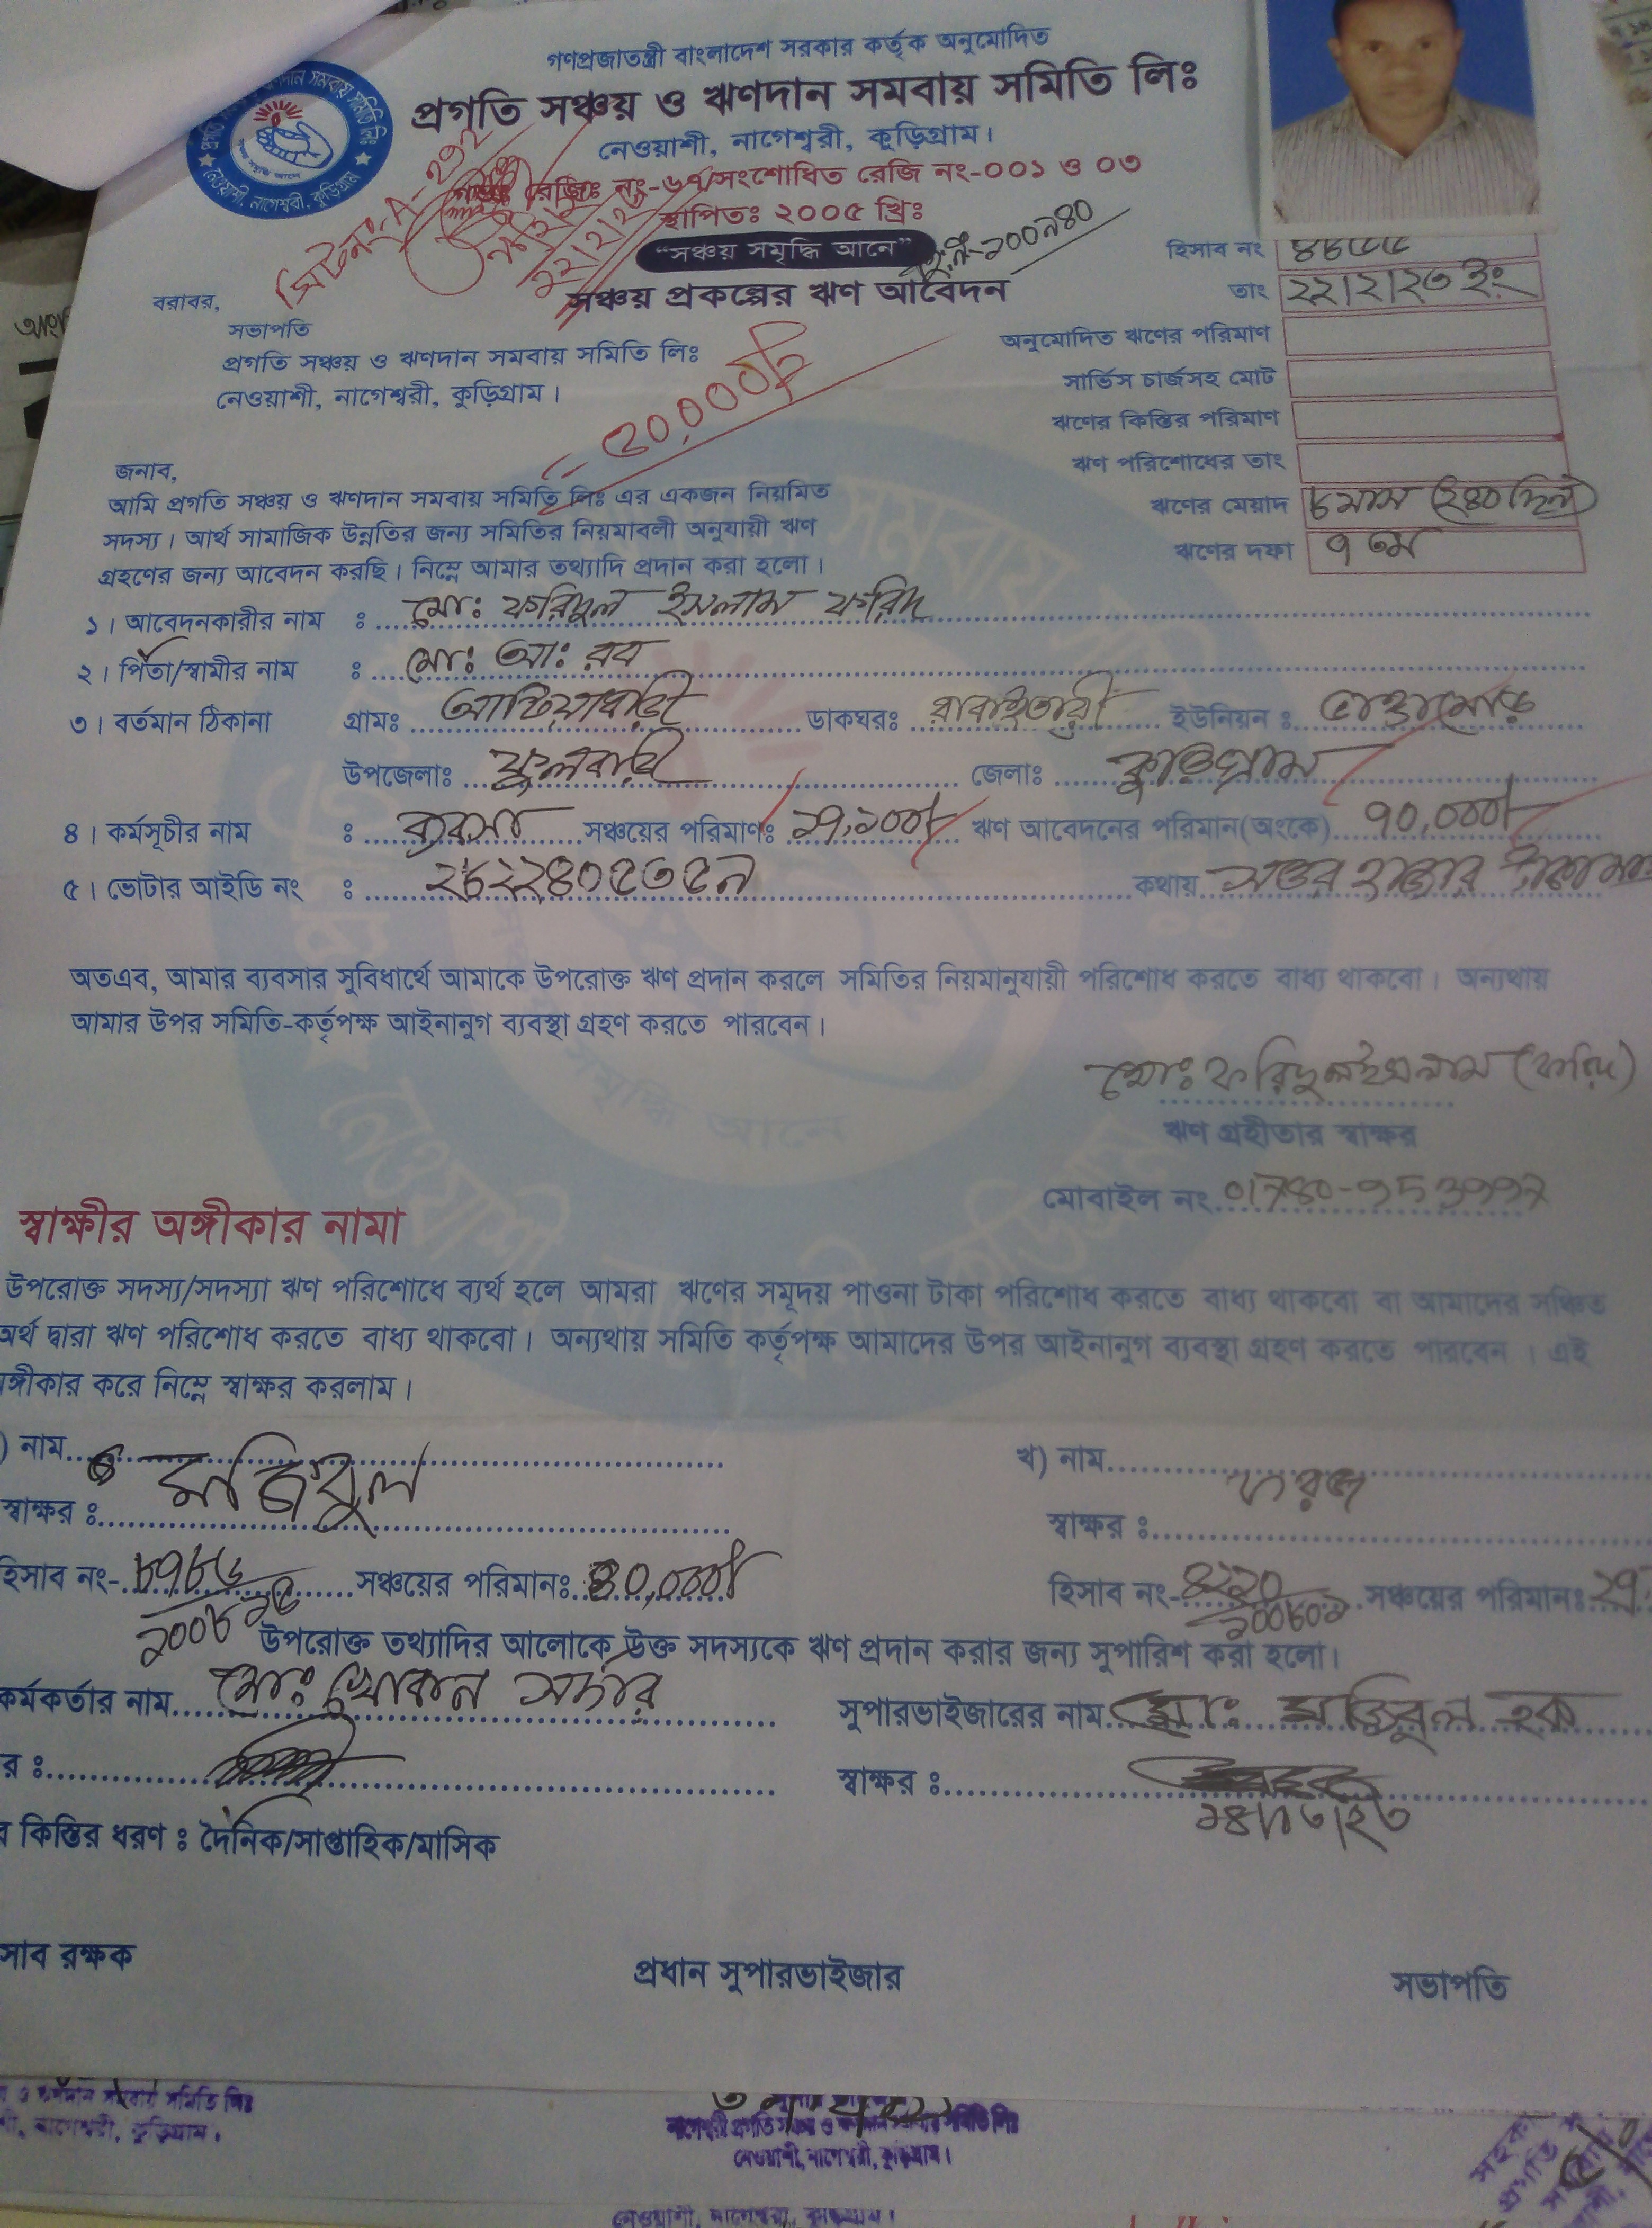 গণপ্রজাতন্ত্রী বাংলাদেশ সরকার কর্তৃক অনুমোদিত
প্রগতি সঞ্চয় ও ঋণদান সমবায় সমিতি লিঃ
নেওয়াশী, নাগেশ্বরী, কুড়িগ্রাম।
রেজিঃ নং-৬৭/সংশোধিত রেজি নং-০০১ ও ০৩
স্থাপিতঃ ২০০৫ খ্রিঃ
"সঞ্চয় সমৃদ্ধি আনে"
সঞ্চয় প্রকল্পের ঋণ আবেদন
হিসাব নং ৪৮৫৫
তাং ২২।২।২৩ ইং
অনুমোদিত ঋণের পরিমাণ
সার্ভিস চার্জসহ মোট
ঋণের কিস্তির পরিমাণ
ঋণ পরিশোধের তাং
ঋণের মেয়াদ ৮ মাস (২৪০ দিন)
ঋণের দফা ৭ তম
বরাবর,
সভাপতি
প্রগতি সঞ্চয় ও ঋণদান সমবায় সমিতি লিঃ
নেওয়াশী, নাগেশ্বরী, কুড়িগ্রাম।
৩০,০০০/-
জনাব,
আমি প্রগতি সঞ্চয় ও ঋণদান সমবায় সমিতি লিঃ এর একজন নিয়মিত
সদস্য। আর্থ সামাজিক উন্নতির জন্য সমিতির নিয়মাবলী অনুযায়ী ঋণ
গ্রহণের জন্য আবেদন করছি। নিম্নে আমার তথ্যাদি প্রদান করা হলো।
১। আবেদনকারীর নাম ঃ মোঃ ফরিদুল ইসলাম ফরিদ
২। পিতা/স্বামীর নাম ঃ মোঃ আঃ রব
৩। বর্তমান ঠিকানা গ্রামঃ ডাকঘরঃ রাবাইতারী ইউনিয়ন ঃ ভাঙ্গামোড়
উপজেলাঃ ফুলবাড়ী জেলাঃ কুড়িগ্রাম
৪। কর্মসূচীর নাম ঃ ব্যবসা সঞ্চয়ের পরিমাণঃ ২৭,১০০/- ঋণ আবেদনের পরিমান(অংকে) ৭০,০০০/-
৫। ভোটার আইডি নং ঃ ২৮২২৪০৫৩৫৯ কথায় সত্তর হাজার টাকা মাত্র
অতএব, আমার ব্যবসার সুবিধার্থে আমাকে উপরোক্ত ঋণ প্রদান করলে সমিতির নিয়মানুযায়ী পরিশোধ করতে বাধ্য থাকবো। অন্যথায়
আমার উপর সমিতি-কর্তৃপক্ষ আইনানুগ ব্যবস্থা গ্রহণ করতে পারবেন।
মোঃ ফরিদুল ইসলাম (ফরিদ)
ঋণ গ্রহীতার স্বাক্ষর
মোবাইল নং
স্বাক্ষীর অঙ্গীকার নামা
উপরোক্ত সদস্য/সদস্যা ঋণ পরিশোধে ব্যর্থ হলে আমরা ঋণের সমূদয় পাওনা টাকা পরিশোধ করতে বাধ্য থাকবো বা আমাদের সঞ্চিত
অর্থ দ্বারা ঋণ পরিশোধ করতে বাধ্য থাকবো। অন্যথায় সমিতি কর্তৃপক্ষ আমাদের উপর আইনানুগ ব্যবস্থা গ্রহণ করতে পারবেন। এই
ঙ্গীকার করে নিম্নে স্বাক্ষর করলাম।
) নাম মজিবুল খ) নাম
স্বাক্ষর ঃ স্বাক্ষর ঃ
হিসাব নং- ৮৭৮৬ সঞ্চয়ের পরিমানঃ ৪০,০০০/- হিসাব নং- ৪২২০ সঞ্চয়ের পরিমানঃ
উপরোক্ত তথ্যাদির আলোকে উক্ত সদস্যকে ঋণ প্রদান করার জন্য সুপারিশ করা হলো।
কর্মকর্তার নাম মোঃ খোকন সর্দার সুপারভাইজারের নাম মোঃ মজিবুল হক
র ঃ স্বাক্ষর ঃ
কিস্তির ধরণ ঃ দৈনিক/সাপ্তাহিক/মাসিক
সাব রক্ষক প্রধান সুপারভাইজার সভাপতি
নেওয়াশী, নাগেশ্বরী, কুড়িগ্রাম।